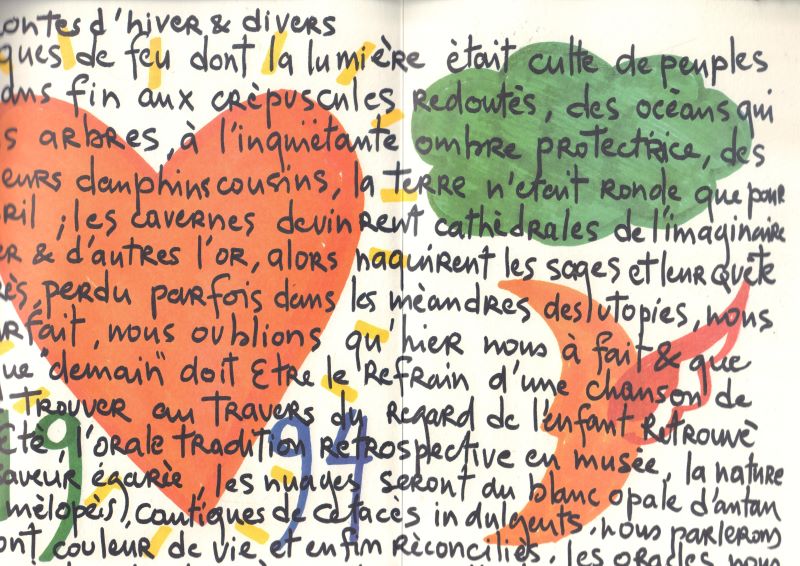 contes d'hiver & divers
ques de feu dont la lumière ètait culte de peuples
ans fin aux crèpuscules redoutès, des ocèans qui
s arbres, à l'inquiètante ombre protectrice, des
eurs dauphins cousins, la terre n'ètait ronde que pour
ril ; les cavernes devinrent cathèdrales de l'imaginaire
er & d'autres l'or, alors naquirent les sages et leur quête
ès, perdu parfois dans les mèandres des utopies, nous
rfait, nous oublions qu'hier nous à fait & que
ue "demain" doit Etre le refrain d'une chanson de
trouver au travers du regard de l'enfant retrouvè
ètè, l'orale tradition retrospective en musèe, la nature
saveur ègarèe, les nuages seront du blanc opale d'antan
mèlopès), cantiques de cètacès indulgents, nous parlerons
ont couleur de vie et enfin rèconciliès. les oracles nous
1994